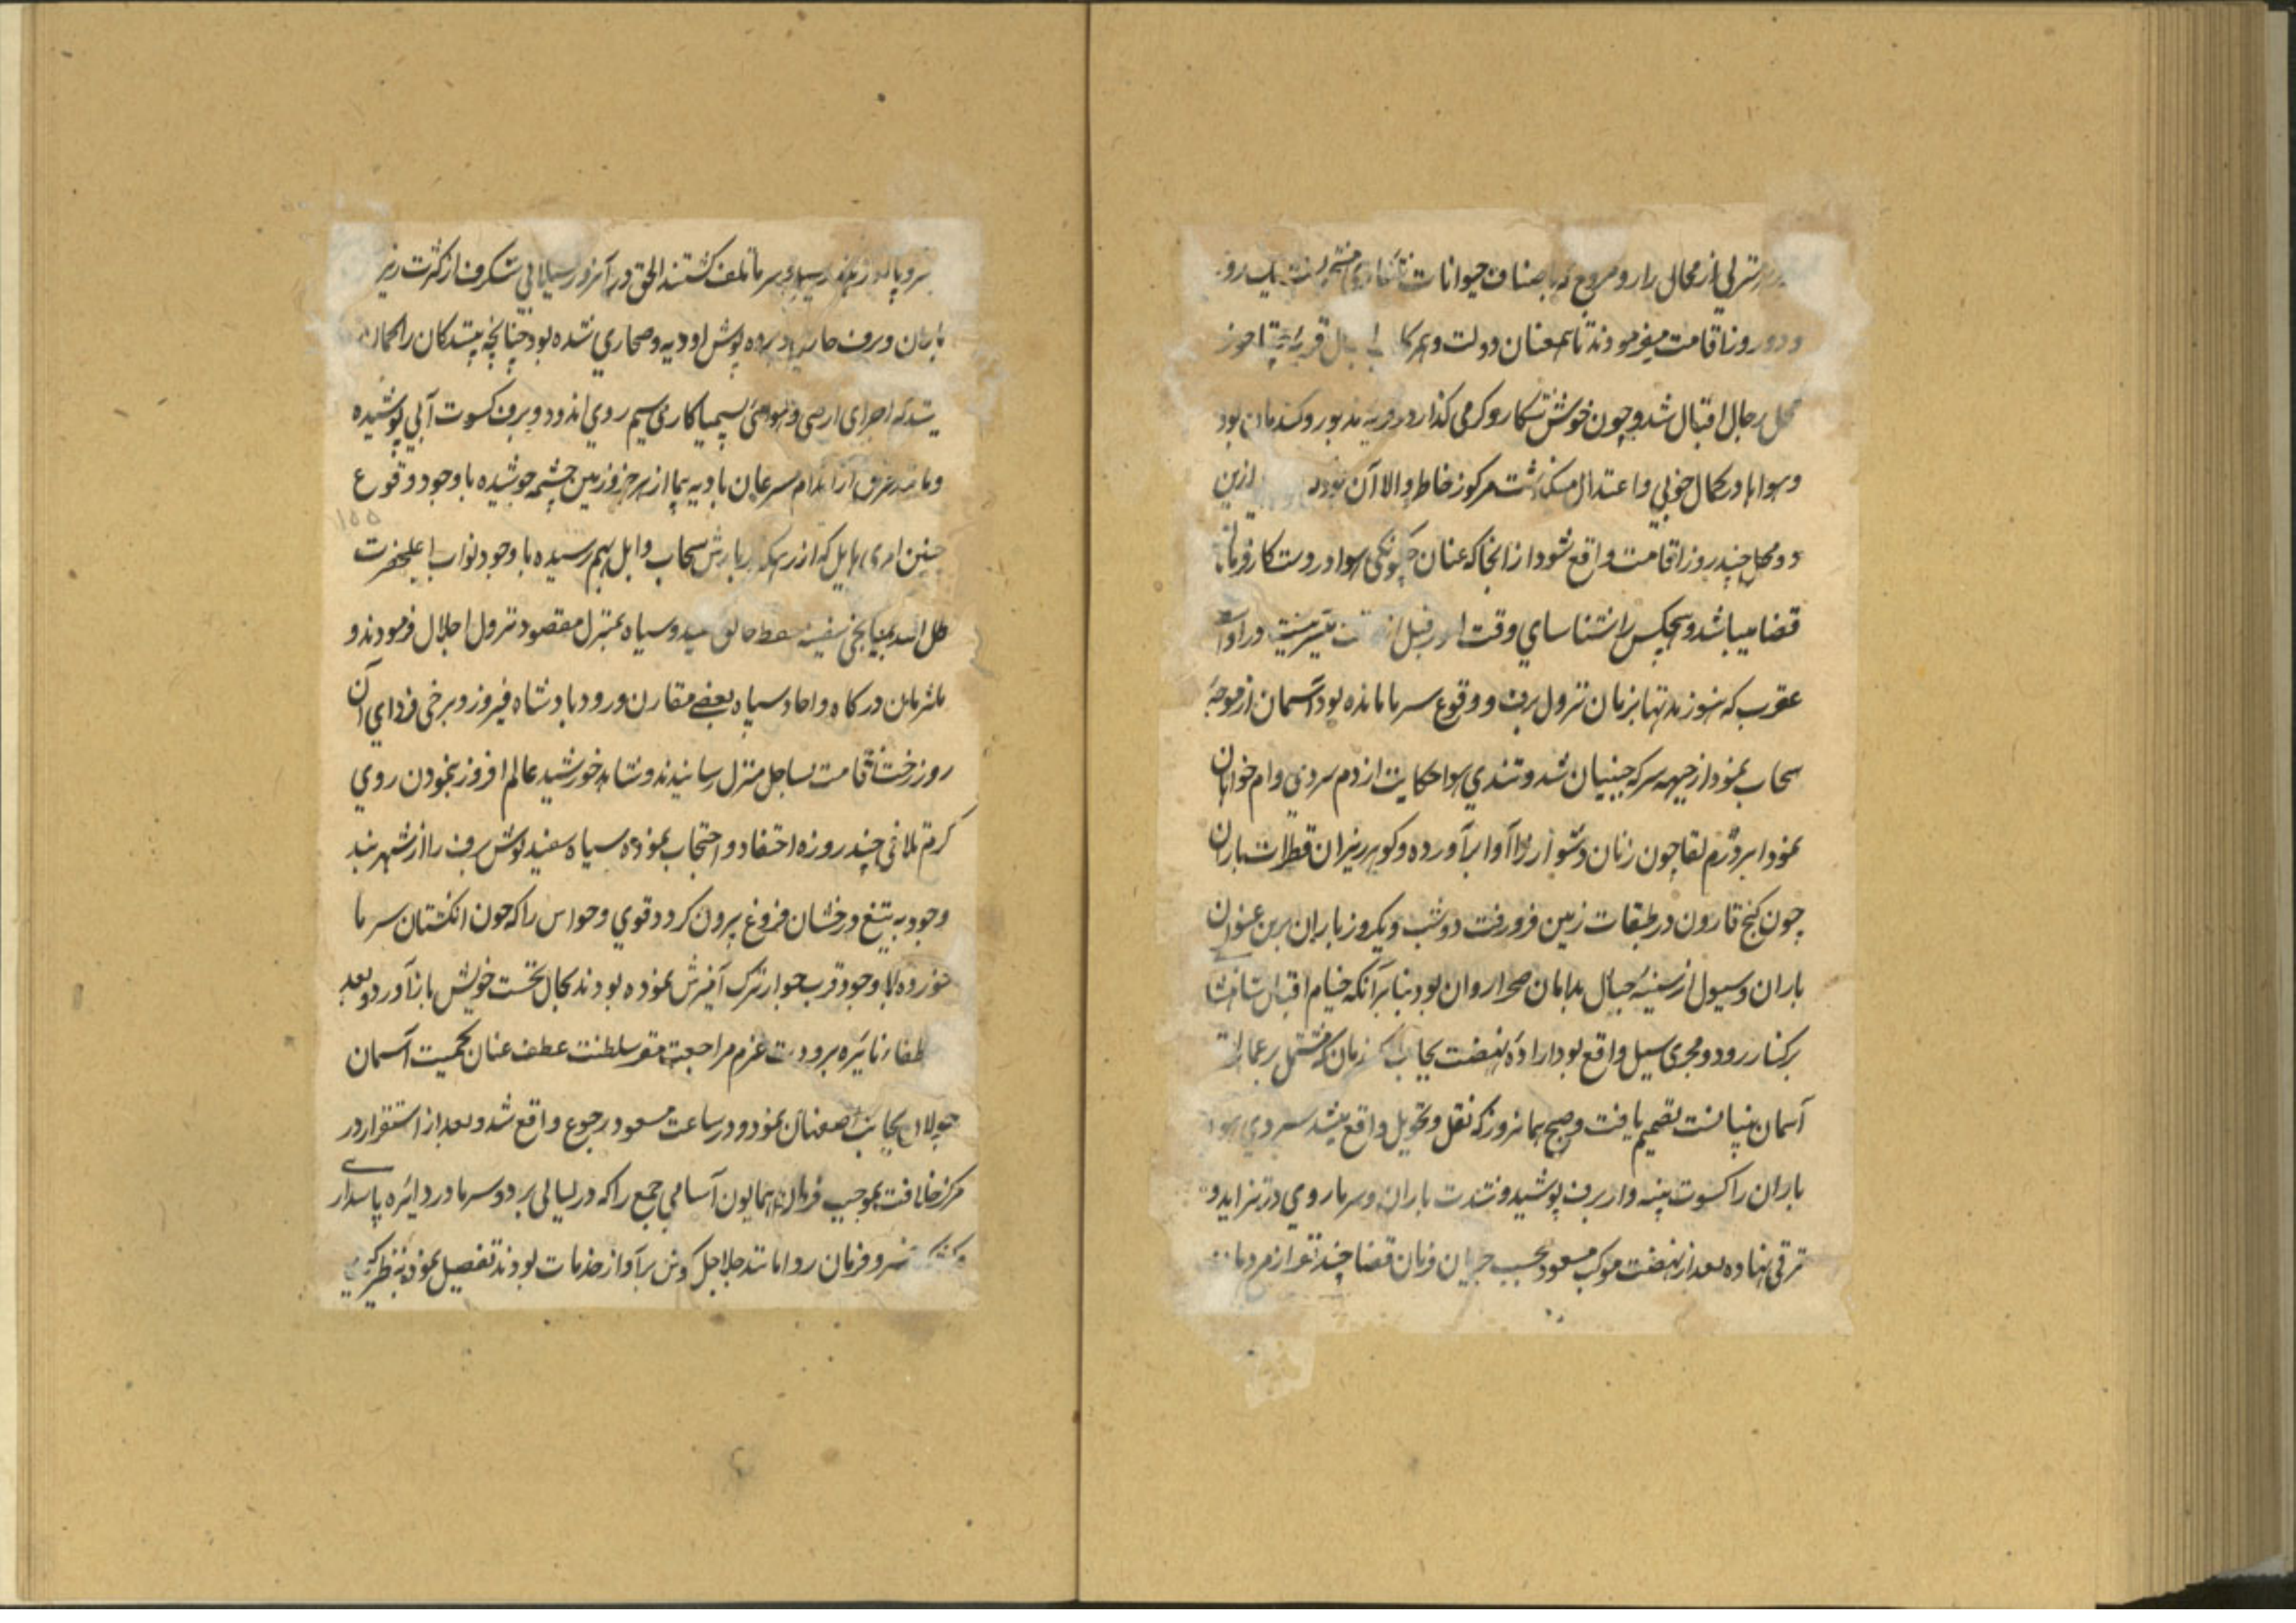 منزلی از محالی را رو مروج که باصناف حیوانات یک روز
و دو روز اقامت میفرمودند تا سمعنان دولت و همرکاب اقبال قریه
محل رجال اقبال شد و چون خوش شکار و کرمی کذار و در قریه مذبور و کندمان بود
و هوا با در کمال خوبی و اعتدال میکذشت مرکوز خاطر والا آن بود ازین
دو محل چند روز اقامت واقع شود از انجا که عنان چکونکی هوا در دست کارفرمای
قضا میباشد و هیچکس را شناسای وقت قبل از میسر نیست در اواسط
عقرب که هنوز مدتها بزمان نزول برف و وقوع سرما مانده بود آسمان از موجهٔ
سحاب نمودار جبهه سرکه جبینان شد و تندی هوا حکایت از دم سردی وام خواهان
نمود ابر دژم لقا چون زنان دشوار زا آوا برآورده و کوهر ریزان قطرات باران
چون کنج قارون در طبقات زمین فرو رفت دو شب و یکروز باران برین عنوان
باران و سیول از سینهٔ جبال بدامان صحرا روان بود بنا بر آنکه خیام اقبال
بر کنار رود و مجری سیل واقع بود ارادهٔ نهضت بجانب کندمان که مشتمل بر عمارات
آسمان بنیانست تصمیم یافت و صبح همانروز که نقل و تحویل واقع میشد سردی هوا
باران را کسوت پنبه وار برف پوشید و شدت باران و سرما روی در تزاید و
ترقی نهاده بعد از نهضت موکب مسعود بحسب جریان فرمان قضا چند نفر از مردمان
سر و پا تلف کشتند الحق در آنروز سیلابی شکرف از کثرت ریز
باران و برف پرده پوش اودیه و صحاری شده بود چنانچه بینندکان را کمان
میشد که اجزای ارضی و هوائی بسیمیا کاری سیم روی اندود و برف کسوت آبی پوشیده
و مانند عرق از اندام سرعیان بادیه پیما از هر جزو زمین چشمه جوشیده با وجود وقوع
چنین امری هایل که از رهکذر بارش سحاب وابل بهم رسیده با وجود نواب اعلیحضرت
ظل الله سفید و سیاه بمنزل مقصود نزول اجلال فرمودند و
ملتزمان درکاه و احاد سپاه بعضی مقارن ورود بادشاه فیروز و برخی فردای آن
روز رخت اقامت بساحل منزل رسانیدند و شاهد خورشید عالم افروز بنمودن روی
کرم تلافی چند روزه اختفاء و احتجاب نموده سپاه سفید پوش برف را از شهر بند
وجود به تیغ درخشان فروغ بیرون کرد و قوی و حواس را که چون انکشتان سرما
خورده با وجود قرب جوار ترک آمیزش نموده بودند بحال نخست خویش باز آورد و بعد
اطفاء نایره برودت عزم مراجعت مقر سلطنت عطف عنان کمیت آسمان
جولان بجانب اصفهان نمود و در ساعت مسعود رجوع واقع شد و بعد از استقرار در
مرکز خلافت بموجب فرمان همایون آسامی جمع را که در لیالی برد و سرما در دایره پاسداری
و فرمان روا مانند جلاجل کوش برآواز خدمات بودند تفصیل نموده بنظر
۱۵۵